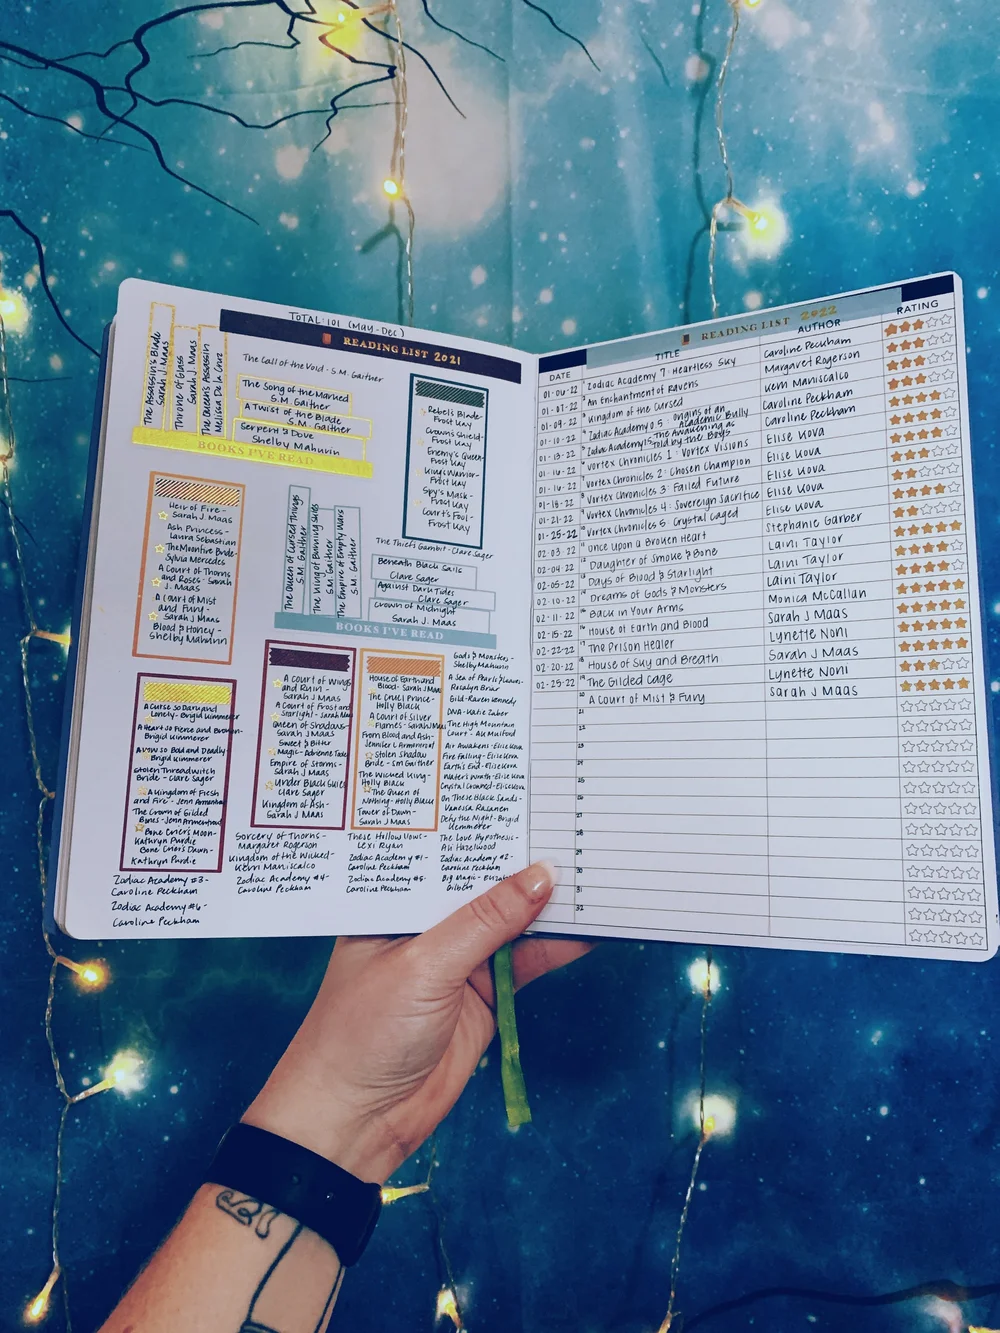 TOTAL: 101 (May-Dec)
READING LIST 2021
The Assassin's Blade
Sarah J. Maas
Throne of Glass
Sarah J. Maas
The Queen's Assassin
Melissa De La Cruz
BOOKS I'VE READ
The Call of the Void - S.M. Gaither
The Song of the Marked
S.M. Gaither
A Twist of the Blade
S.M. Gaither
Serpent & Dove
Shelby Mahurin
Rebel's Blade-
Frost Kay
Crown's Shield-
Frost Kay
Enemy's Queen-
Frost Kay
King's Warrior-
Frost Kay
Spy's Mask-
Frost Kay
Court's Fool-
Frost Kay
Heir of Fire-
Sarah J. Maas
Ash Princess-
Laura Sebastian
The Moonfire Bride-
Sylvia Mercedes
A Court of Thorns
and Roses- Sarah
J. Maas
A Court of Mist
and Fury-
Sarah J Maas
Blood & Honey-
Shelby Mahurin
The Queen of Cursed Things
S.M. Gaither
The King of Burning Skies
S.M. Gaither
The Empire of Empty Wars
S.M. Gaither
BOOKS I'VE READ
The Thief's Gambit-Clare Sager
Beneath Black Sails
Clare Sager
Against Dark Tides
Clare Sager
Crown of Midnight
Sarah J. Maas
A Curse So Dark and
Lonely- Brigid Kemmerer
A Heart So Fierce and Broken-
Brigid Kemmerer
A Vow so Bold and Deadly-
Brigid Kemmerer
Stolen Threadwitch
Bride - Clare Sager
A Kingdom of Flesh
and Fire - Jenn Armentrout
The Crown of Gilded
Bones-Jenn Armentrout
Bone Crier's Moon-
Kathryn Purdie
Bone Crier's Dawn-
Kathryn Purdie
Zodiac Academy #3-
Caroline Peckham
Zodiac Academy #6-
Caroline Peckham
A Court of Wings
and Ruin-
Sarah J Maas
A Court of Frost and
Starlight- Sarah Maas
Queen of Shadows-
Sarah J Maas
Sweet & Bitter
Magic-Adrienne Tooley
Empire of Storms-
Sarah J Maas
Under Black Skies
Clare Sager
Kingdom of Ash-
Sarah J Maas
Sorcery of Thorns-
Margaret Rogerson
Kingdom of the Wicked-
Kerri Maniscalco
Zodiac Academy #4-
Caroline Peckham
House of Earth and
Blood-Sarah J Maas
The Cruel Prince-
Holly Black
A Court of Silver
Flames-Sarah Maas
From Blood and Ash-
Jennifer L Armentrout
Stolen Shadow
Bride - SM Gaither
The Wicked King-
Holly Black
The Queen of
Nothing-Holly Black
Tower of Dawn-
Sarah J Maas
These Hollow Vows-
Lexi Ryan
Zodiac Academy #1-
Caroline Peckham
Zodiac Academy #5-
Caroline Peckham
Gods & Monsters-
Shelby Mahurin
A Sea of Pearls & Leaves-
Rosalyn Briar
Gild-Raven Kennedy
DNA-Katie Zaber
The High Mountain
Court - AK Mulford
Air Awakens-Elise Kova
Fire Falling-Elise Kova
Earth's End-Elise Kova
Water's Wrath-Elise Kova
Crystal Crowned-Elise Kova
On These Black Sands-
Vanessa Rasanen
Defy the Night-Brigid
Kemmerer
The Love Hypothesis-
Ali Hazelwood
Zodiac Academy #2-
Caroline Peckham
Big Magic- Elizabeth
Gilbert
READING LIST 2022
DATE TITLE AUTHOR RATING
01-06-22 1 Zodiac Academy 7: Heartless Sky Caroline Peckham
01-07-22 2 An Enchantment of Ravens Margaret Rogerson
01-09-22 3 Kingdom of the Cursed Kerri Maniscalco
01-10-22 4 Zodiac Academy 0.5: Origins of an Academic Bully Caroline Peckham
01-13-22 5 Zodiac Academy 1.5: The Awakening as told by the Boys Caroline Peckham
01-16-22 6 Vortex Chronicles 1: Vortex Visions Elise Kova
01-16-22 7 Vortex Chronicles 2: Chosen Champion Elise Kova
01-18-22 8 Vortex Chronicles 3: Failed Future Elise Kova
01-21-22 9 Vortex Chronicles 4: Sovereign Sacrifice Elise Kova
01-25-22 10 Vortex Chronicles 5: Crystal Caged Elise Kova
02-03-22 11 Once Upon a Broken Heart Stephanie Garber
02-04-22 12 Daughter of Smoke & Bone Laini Taylor
02-05-22 13 Days of Blood & Starlight Laini Taylor
02-10-22 14 Dreams of Gods & Monsters Laini Taylor
02-11-22 15 Back in Your Arms Monica McCallan
02-15-22 16 House of Earth and Blood Sarah J Maas
02-22-22 17 The Prison Healer Lynette Noni
02-20-22 18 House of Sky and Breath Sarah J Maas
02-25-22 19 The Gilded Cage Lynette Noni
20 A Court of Mist & Fury Sarah J Maas
21
22
23
24
25
26
27
28
29
30
31
32